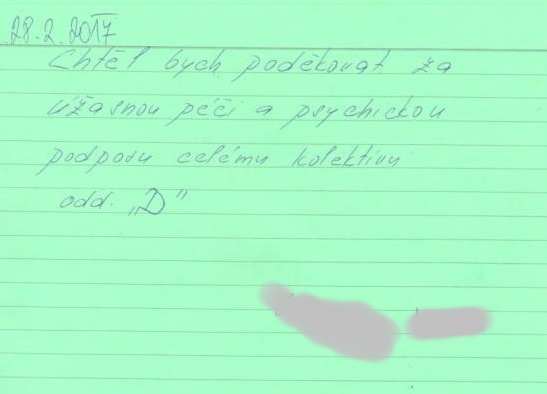 28.2.2017
Chtěl bych poděkovat za
úžasnou péči a psychickou
podporu celému kolektivu
odd. „D"